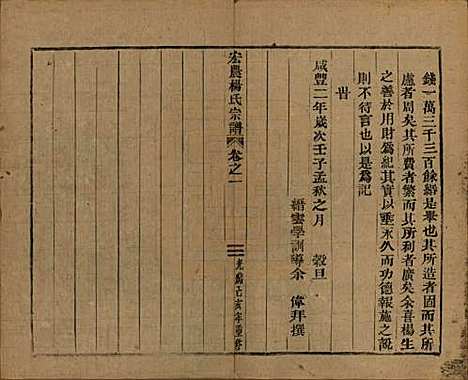 錢一萬三千三百餘緡是舉也其所造者固而其所
慮者周矣其所費者繁而其所利者廣矣余喜楊生
之善於用財爲紀其實以垂永久而其功德報施之說
則不待言也以是爲記
旹
咸豐二年歲次壬子孟秋之月 穀旦
縉雲學訓導余 偉拜撰
宏農楊氏宗譜 卷之一 光緒乙亥年重修